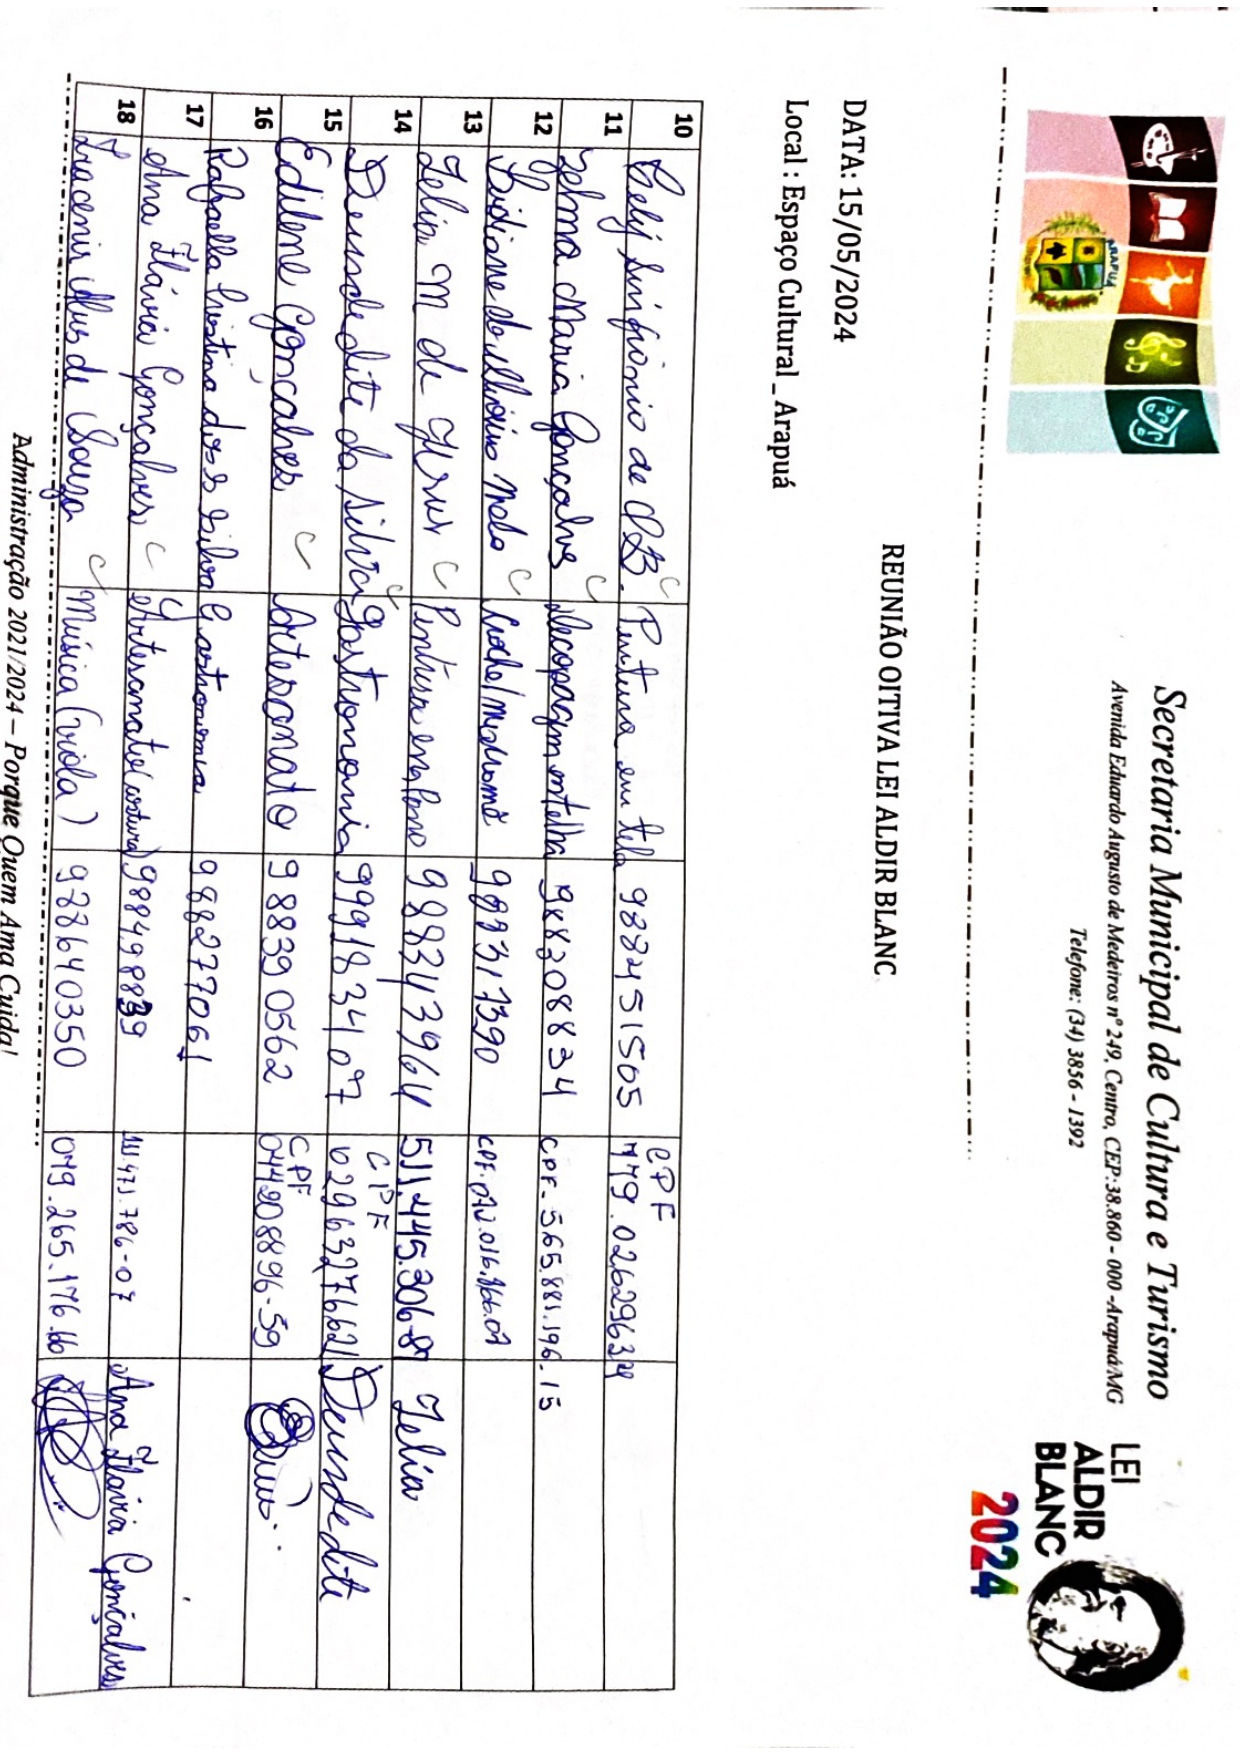 Secretaria Municipal de Cultura e Turismo
Avenida Eduardo Augusto de Medeiros nº 249, Centro, CEP:38.860 - 000 -Arapuá/MG
Telefone: (34) 3856 - 1392
LEI
ALDIR
BLANC
2024
ARAPUÁ
REUNIÃO OITIVA LEI ALDIR BLANC
DATA: 15/05/2024
Local : Espaço Cultural _ Arapuá
10 Cely Sinfrônio de O.B. Pintura em tela 988451505 CPF 779.02629634
11 Zelma Maria Gonçalves Decopagem em telha 988308834 CPF- 565.881.196.15
12 Melo 988317390 CPF. 072.016.866.07
13 Zelia M de Jesus Pintura em Pano 988343964 511.445.306-87 Zelia
14 Deusdedite da Silva Gastronomia 999183407 CPF 02963276621 Deusdedite
15 Edilene Gonçalves Artesanato 988390562 CPF 044208896-59
16 Rafaella Cristina dos S Silva Gastronomia 988277061
17 Ana Flávia Gonçalves Artesanato (costura) 988498839 111.471.786-07 Ana Flávia Gonçalves
18 Iracenir Alves de Souza Música (viola) 988640350 079.265.176.66
Administração 2021/2024 – Porque Quem Ama Cuida!